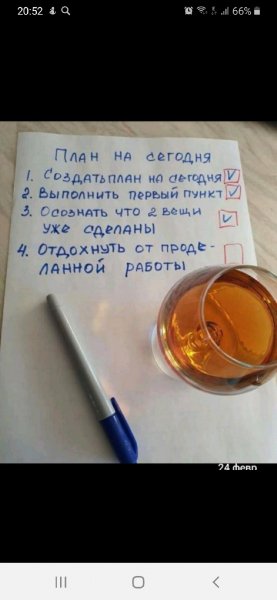 20:52
66%
План на сегодня
1. Создать план на сегодня
2. Выполнить первый пункт
3. Осознать что 2 вещи
уже сделаны
4. Отдохнуть от проде-
ланной работы
24 февр.